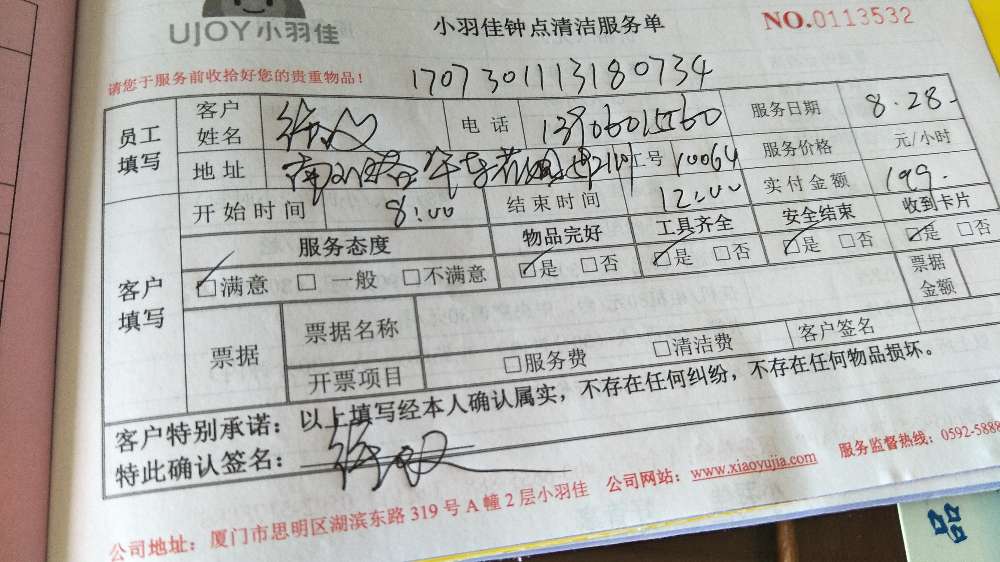 UJOY小羽佳
小羽佳钟点清洁服务单
NO.0113532
请您于服务前收拾好您的贵重物品！
1707301113180734
员工填写 客户姓名 徐 电话 服务日期 8.28.
地址 工号 10064 服务价格 元/小时
客户填写 开始时间 8:00 结束时间 12:00 实付金额 199.
服务态度 物品完好 工具齐全 安全结束 收到卡片
☑满意 □一般 □不满意 ☑是 □否 ☑是 □否 ☑是 □否 ☑是 □否
票据 票据名称 票据金额
开票项目 □服务费 □清洁费 客户签名
客户特别承诺：以上填写经本人确认属实，不存在任何纠纷，不存在任何物品损坏。
特此确认签名：徐
公司地址：厦门市思明区湖滨东路319号A幢2层小羽佳 公司网站：www.xiaoyujia.com 服务监督热线：0592-5888